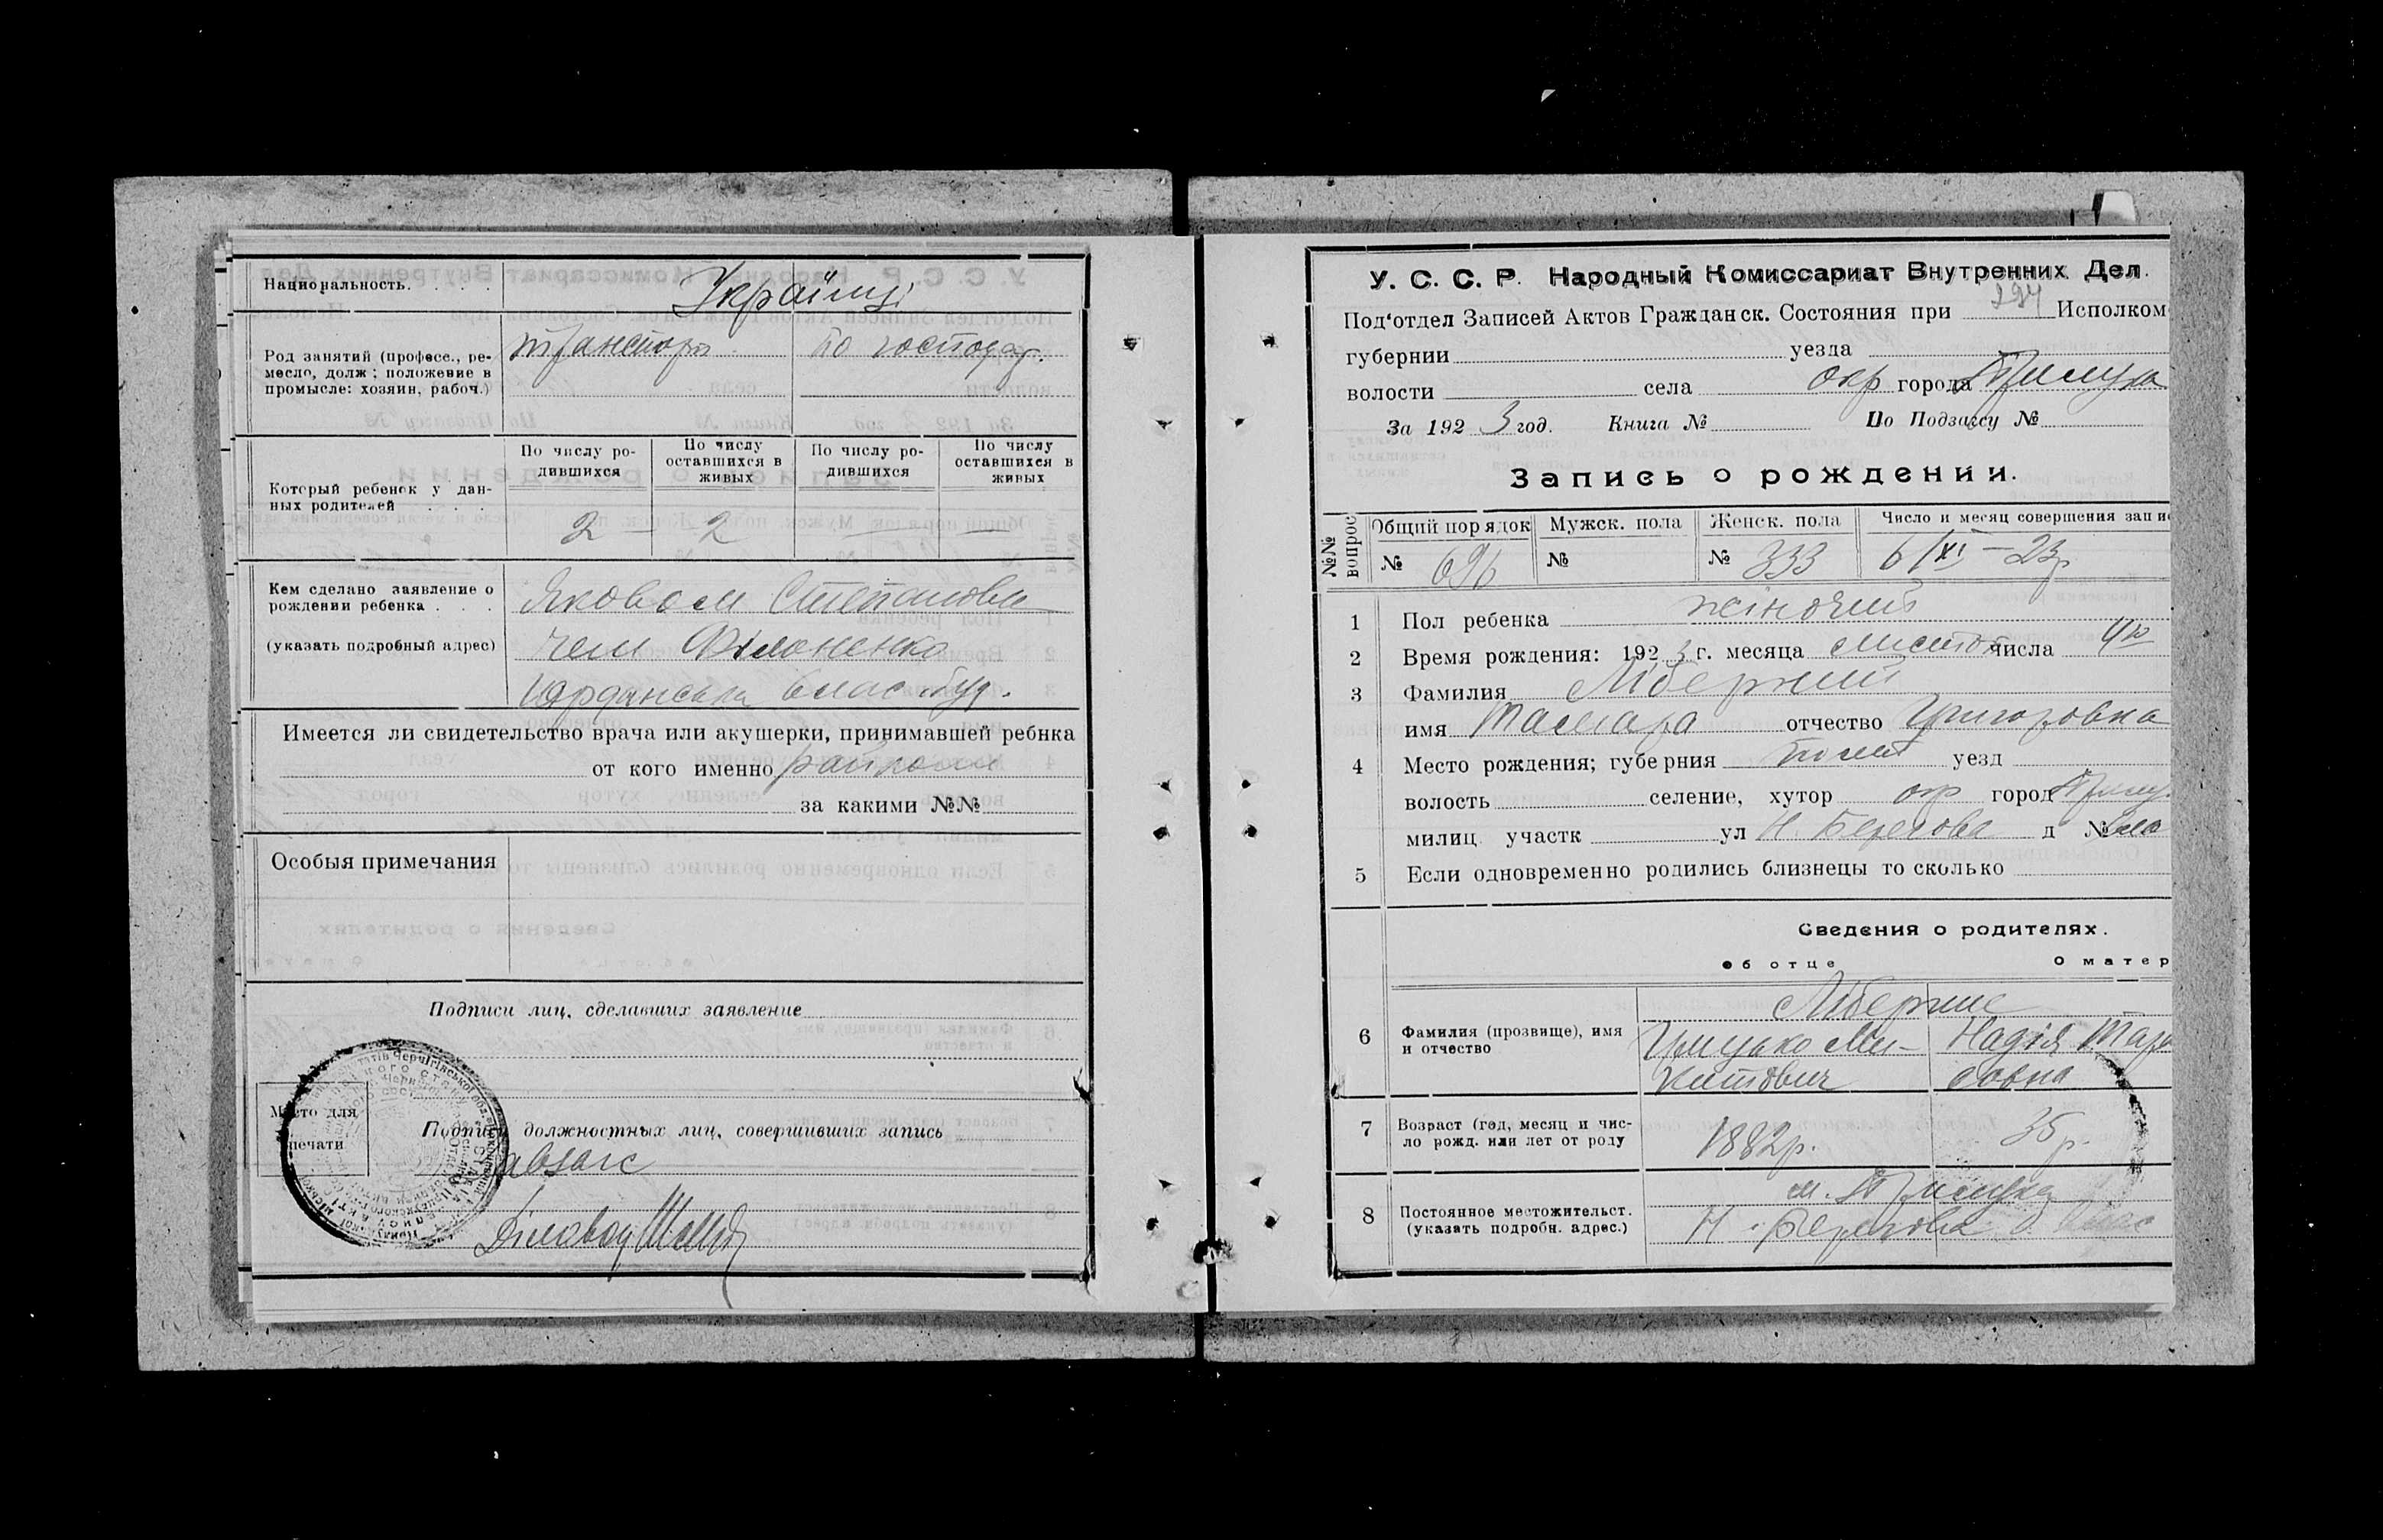 Национальность. . . . Українці
Род занятий (професс., ре-
месло, долж; положение в
промысле: хозяин, рабоч.)
транспорт по господар.
Который ребенок у дан-
ных родителей . . .
По числу ро-
дившихся
По числу
оставшихся в
живых
По числу ро-
дившихся
По числу
оставшихся в
живых
2 — 2 — —
Кем сделано заявление о
рождении ребенка . . .
(указать подробный адрес)
Яковом Степанови
чем Філоненко
Имеется ли свидетельство врача или акушерки, принимавшей ребнка
от кого именно
за какими №№
Особыя примечания
Подписи лиц, сделавших заявление
Место для
печати
Подписи должностных лиц, совершивших запись
Завзагс
Діловод
У. С. С. Р. Народный Комиссариат Внутренних Дел.
294
Под'отдел Записей Актов Гражданск. Состояния при Исполком
губернии уезда
волости села окр города Прилука
За 192 3 год. Книга № По Подзагсу №
Запись о рождении.
№№ вопрос
Общий порядок Мужск. пола Женск. пола Число и месяц совершения запис
№ 696 № № 333 6/XI – 23р
1 Пол ребенка жіночий
2 Время рождения: 192 3 г. месяца листоп числа 4го
3 Фамилия
имя Тамара отчество Григоровна
4 Место рождения; губерния уезд
волость селение, хутор окр город Прилу
милиц. участк ул Н. Берегова д №
5 Если одновременно родились близнецы то сколько
Сведения о родителях.
об отце О матер
6 Фамилия (прозвище), имя
и отчество
Грицько Ми-
китович
Надія Тара
совна
7 Возраст (год, месяц и чис-
ло рожд. или лет от роду
1882р. 35 р.
8 Постоянное местожительст.
(указать подробн. адрес.)
м. Прилука
Н. Берегова